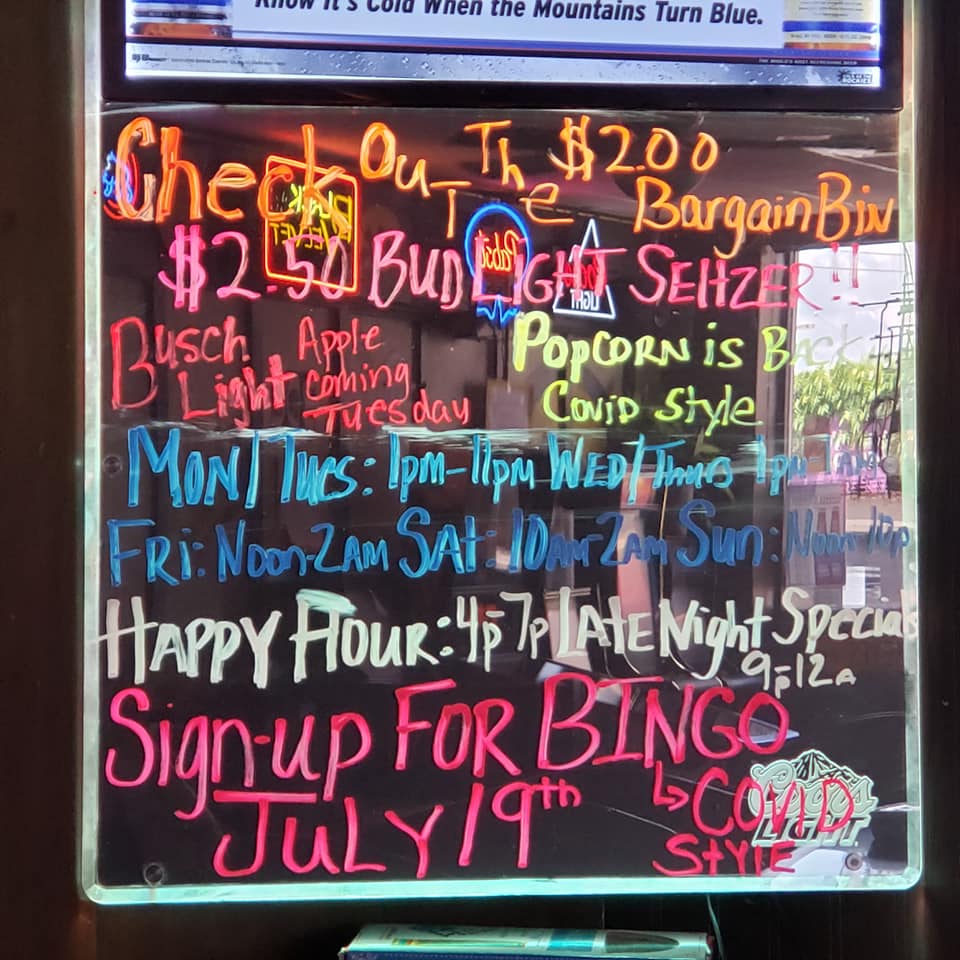 Know It's Cold When the Mountains Turn Blue.
THE WORLD'S MOST REFRESHING BEER
Check Out The $2.00
Bargain Bin
$2.50 Bud Light Seltzer!!
Busch Light Apple coming Tuesday
Popcorn is Back
Covid Style
Mon/Tues: 1pm-11pm Wed/Thurs 1pm
Fri: Noon-2am Sat: 10am-2am Sun: Noon-10p
Happy Hour: 4p-7p Late Night Specials
9p-12a
Sign-up For BINGO
July 19th
↳ COVID
Style
Coors
LIGHT